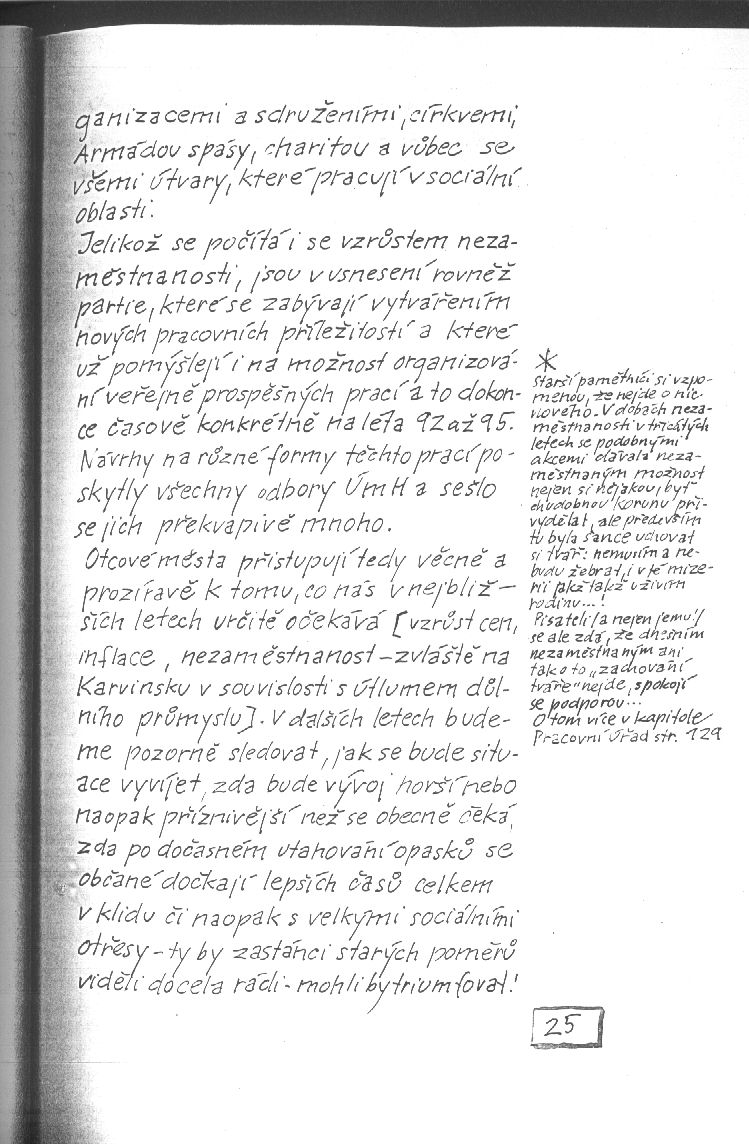 ganizacemi a sdruženími, církvemi,
Armádou spásy, charitou a vůbec se
všemi útvary, které pracují v sociální
oblasti.
Jelikož se počítá i se vzrůstem neza-
městnanosti, jsou v usnesení rovněž
partie, které se zabývají vytvářením
nových pracovních příležitostí a které
už pomýšlejí i na možnost organizová-
ní veřejně prospěšných prací a to dokon-
ce časově konkrétně na léta 92 až 95.
Návrhy na různé formy těchto prací po-
skytly všechny odbory ÚmH a sešlo
se jich překvapivě mnoho.
Otcové města přistupují tedy věcně a
prozíravě k tomu, co nás v nejbliž-
ších letech určitě očekává [vzrůst cen,
inflace, nezaměstnanost - zvláště na
Karvinsku v souvislosti s útlumem důl-
ního průmyslu]. V dalších letech bude-
me pozorně sledovat, jak se bude situ-
ace vyvíjet, zda bude vývoj horší nebo
naopak příznivější než se obecně čeká,
zda po dočasném utahování opasků se
občané dočkají lepších časů celkem
v klidu či naopak s velkými sociálními
otřesy - ty by zastánci starých poměrů
viděli docela rádi - mohli by triumfovat!
*
Starší pamětníci si vzpo-
menou, že nejde o nic
nového. V dobách neza-
městnanosti v třicátých
letech se podobnými
akcemi dávala neza-
městnaným možnost
nejen si nějakou, byť
chudobnou korunu při-
vydělat, ale především
tu byla šance uchovat
si tvář: nemusím a ne-
budu žebrat, i v té mize-
rii jakž takž uživím
rodinu...!
Pisateli /a nejen jemu!/
se ale zdá, že dnešním
nezaměstnaným ani
tak o to „zachování
tváře" nejde, spokojí
se podporou...
O tom více v kapitole
Pracovní úřad str. 129
25